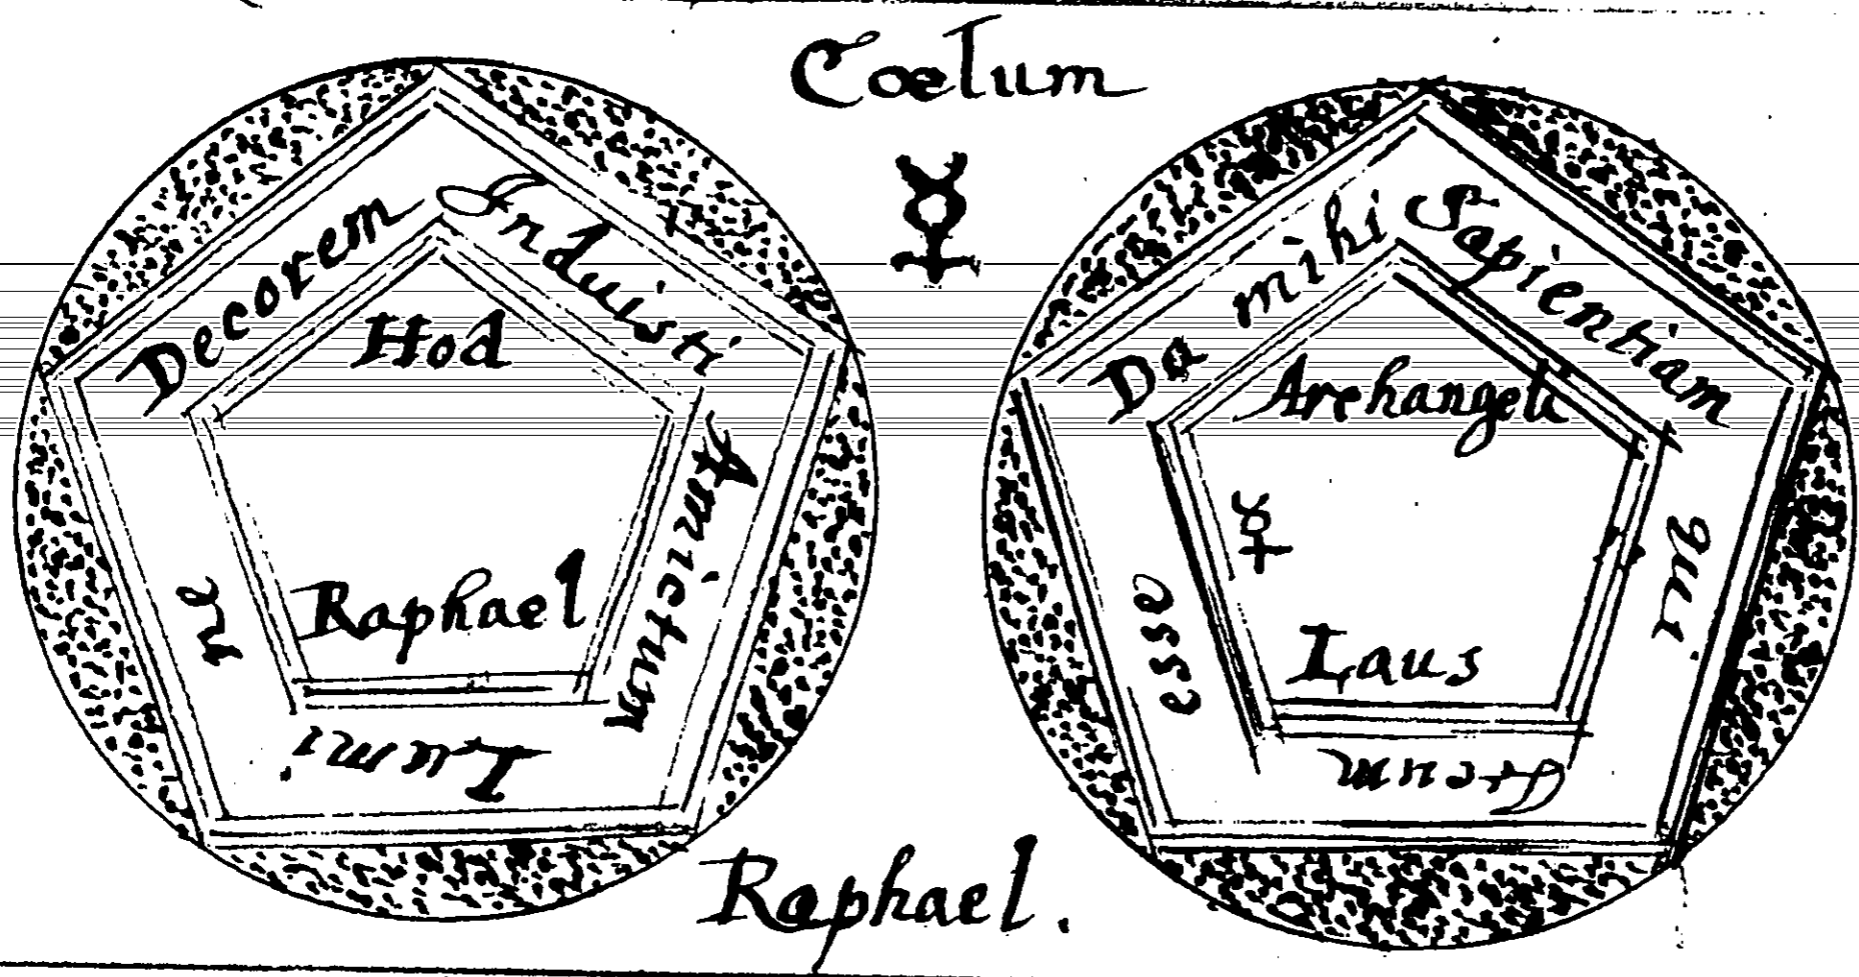 Coelum
☿
Decorem Induisti Amictum Lumi ne
Hod
Raphael
Da mihi Sapientiam qui
esse
Archangeli
☿
Laus
Raphael.